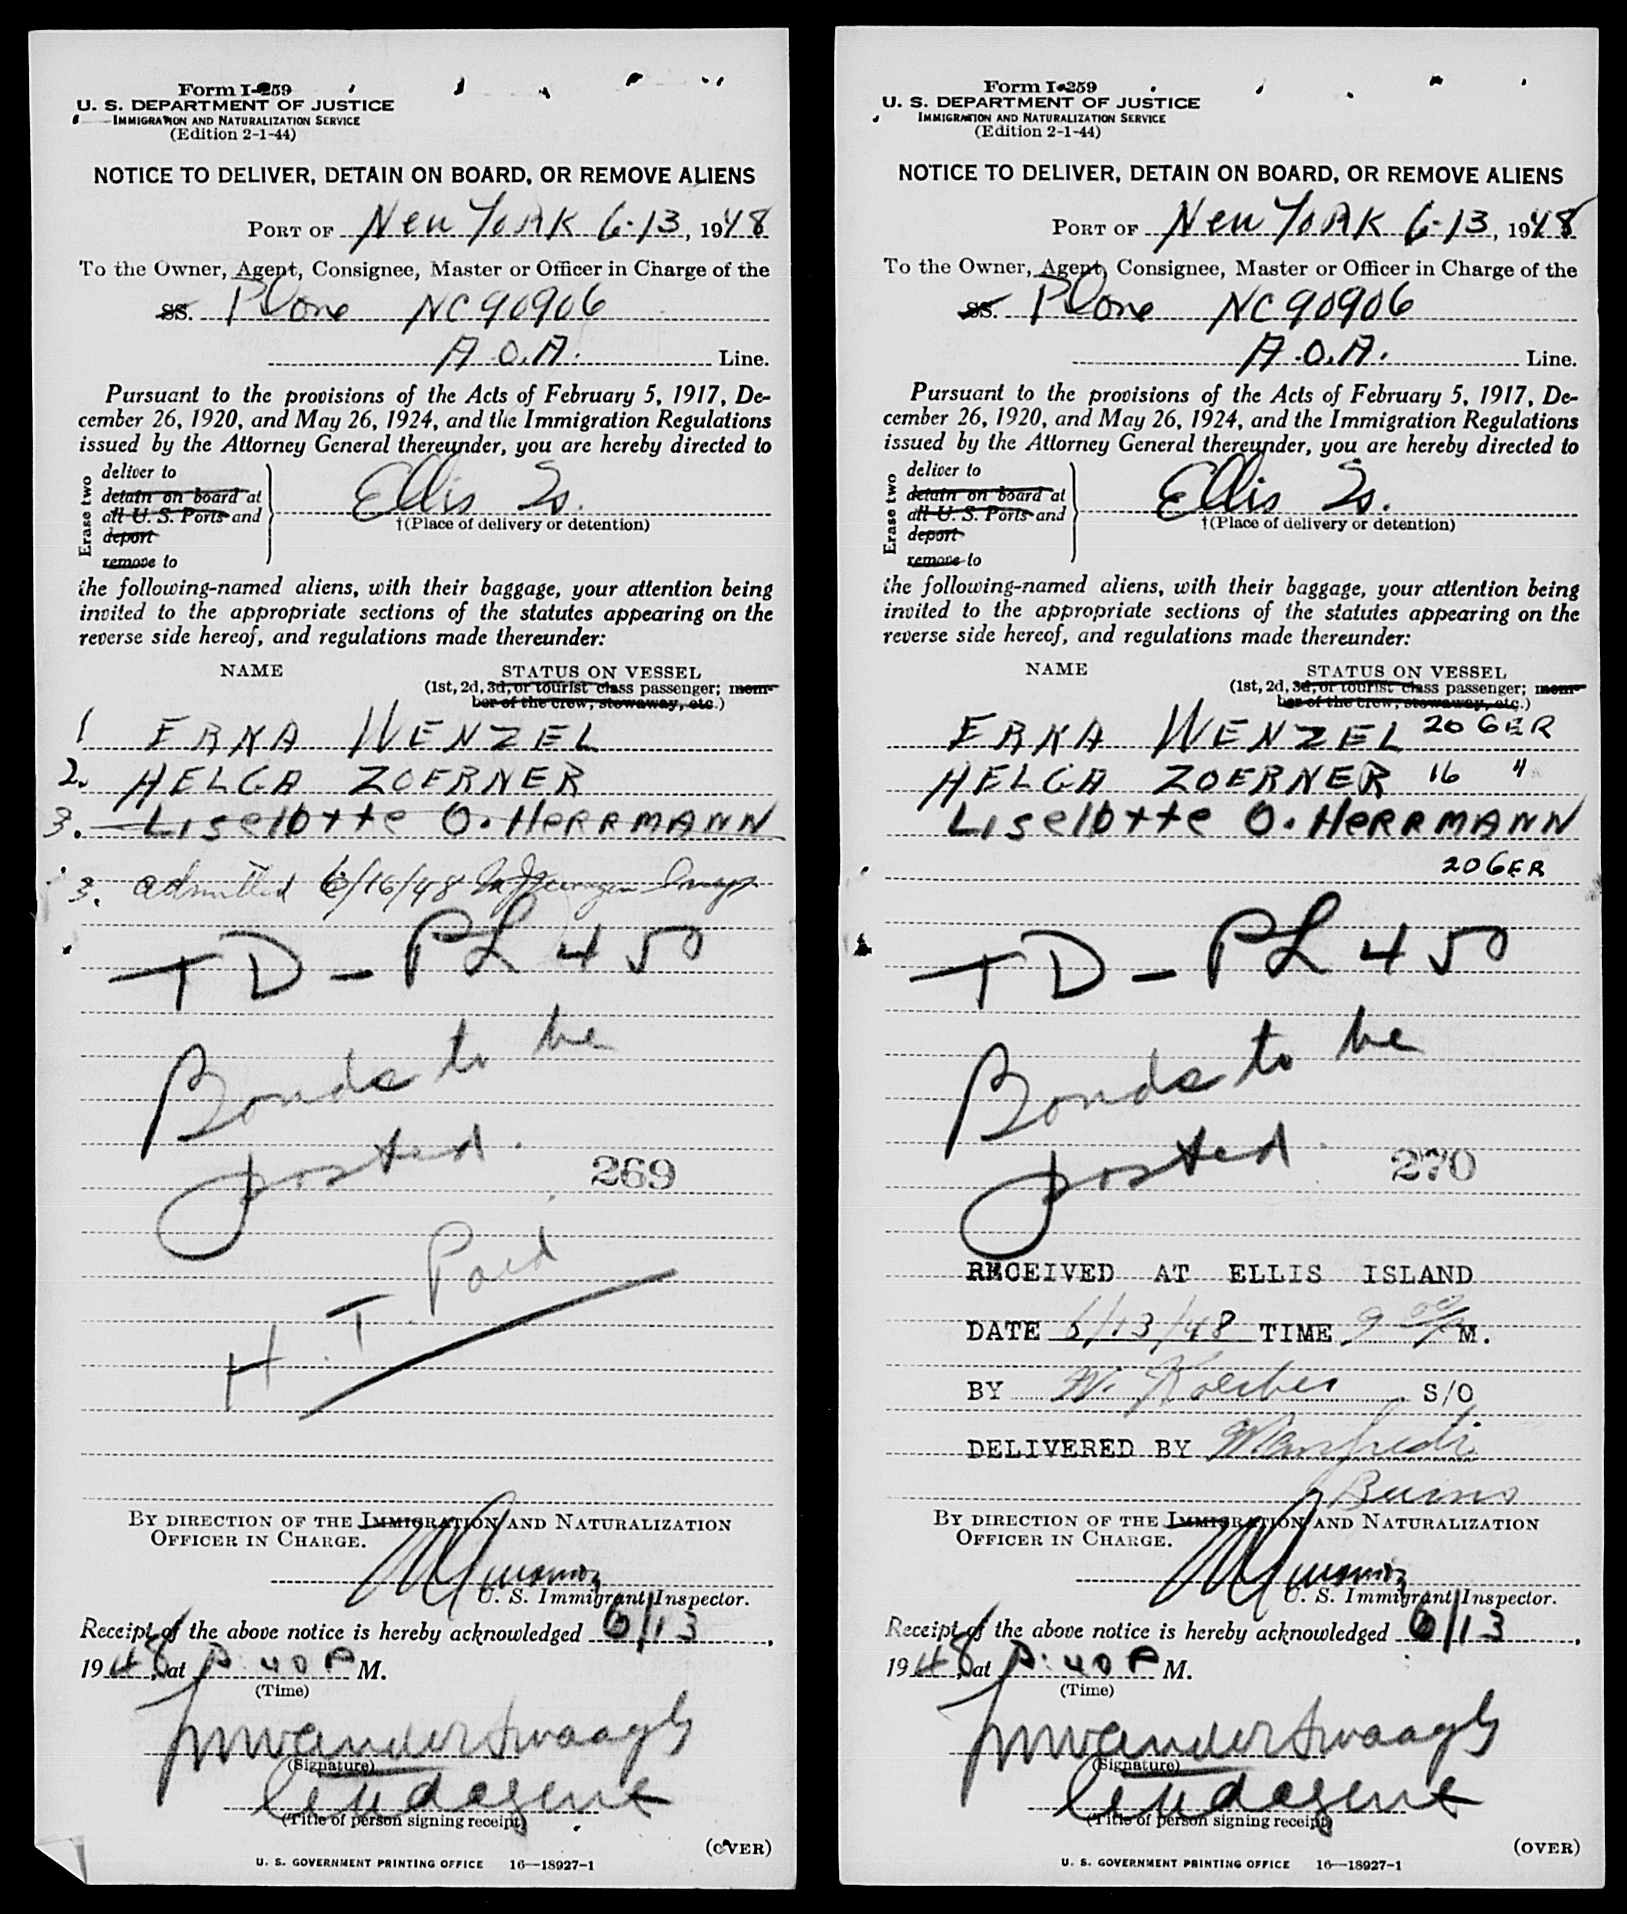 Form I-259
U. S. DEPARTMENT OF JUSTICE
IMMIGRATION AND NATURALIZATION SERVICE
(Edition 2-1-44)
NOTICE TO DELIVER, DETAIN ON BOARD, OR REMOVE ALIENS
PORT OF New York 6-13, 1948
To the Owner, Agent, Consignee, Master or Officer in Charge of the
SS. Plane NC90906
A.O.A. Line.
Pursuant to the provisions of the Acts of February 5, 1917, De-
cember 26, 1920, and May 26, 1924, and the Immigration Regulations
issued by the Attorney General thereunder, you are hereby directed to
Erase two
deliver to
detain on board at
all U. S. Ports and
deport
remove to
Ellis Is.
†(Place of delivery or detention)
the following-named aliens, with their baggage, your attention being
invited to the appropriate sections of the statutes appearing on the
reverse side hereof, and regulations made thereunder:
NAME STATUS ON VESSEL
(1st, 2d, 3d, or tourist class passenger; mem-
ber of the crew, stowaway, etc.)
1 ERKA WENZEL
2. HELGA ZOERNER
3. Liselotte O. HERRMANN
3. admitted 6/16/48
TD - PL 450
Bonds to be
posted.
269
H.T. Paid
BY DIRECTION OF THE IMMIGRATION AND NATURALIZATION
OFFICER IN CHARGE.
U. S. Immigrant Inspector.
Receipt of the above notice is hereby acknowledged 6/13,
1948, at :40 P M.
(Time)
(Signature)
(Title of person signing receipt)
(OVER)
U. S. GOVERNMENT PRINTING OFFICE 16—18927-1
Form I-259
U. S. DEPARTMENT OF JUSTICE
IMMIGRATION AND NATURALIZATION SERVICE
(Edition 2-1-44)
NOTICE TO DELIVER, DETAIN ON BOARD, OR REMOVE ALIENS
PORT OF New York 6-13, 1948
To the Owner, Agent, Consignee, Master or Officer in Charge of the
SS. Plane NC90906
A.O.A. Line.
Pursuant to the provisions of the Acts of February 5, 1917, De-
cember 26, 1920, and May 26, 1924, and the Immigration Regulations
issued by the Attorney General thereunder, you are hereby directed to
Erase two
deliver to
detain on board at
all U. S. Ports and
deport
remove to
Ellis Is.
†(Place of delivery or detention)
the following-named aliens, with their baggage, your attention being
invited to the appropriate sections of the statutes appearing on the
reverse side hereof, and regulations made thereunder:
NAME STATUS ON VESSEL
(1st, 2d, 3d, or tourist class passenger; mem-
ber of the crew, stowaway, etc.)
ERKA WENZEL 20 GER
HELGA ZOERNER 16 "
Liselotte O. HERRMANN
20 GER
TD - PL 450
Bonds to be
posted.
270
RECEIVED AT ELLIS ISLAND
DATE 6/13/48 TIME 9 00 M.
BY W. S/O
DELIVERED BY Manfredi
Burns
BY DIRECTION OF THE IMMIGRATION AND NATURALIZATION
OFFICER IN CHARGE.
U. S. Immigrant Inspector.
Receipt of the above notice is hereby acknowledged 6/13,
1948, at :40 P M.
(Time)
(Signature)
(Title of person signing receipt)
(OVER)
U. S. GOVERNMENT PRINTING OFFICE 16—18927-1